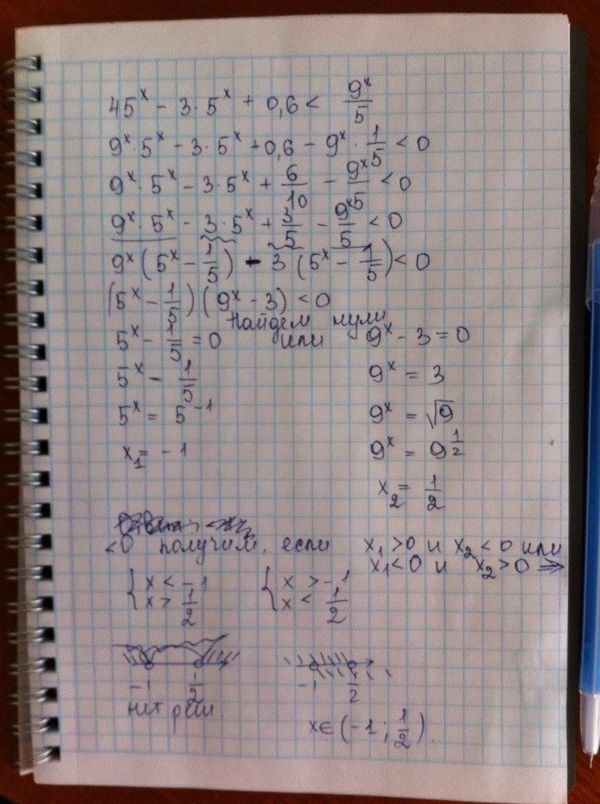 45ˣ − 3·5ˣ + 0,6 < 9ˣ/5
9ˣ·5ˣ − 3·5ˣ + 0,6 − 9ˣ·1/5 < 0
9ˣ·5ˣ − 3·5ˣ + 6/10 − 9ˣ/5 < 0
9ˣ·5ˣ − 3·5ˣ + 3/5 − 9ˣ/5 < 0
9ˣ(5ˣ − 1/5) − 3(5ˣ − 1/5) < 0
(5ˣ − 1/5)(9ˣ − 3) < 0
Найдем нули
5ˣ − 1/5 = 0 или 9ˣ − 3 = 0
5ˣ = 1/5 9ˣ = 3
5ˣ = 5⁻¹ 9ˣ = √9
x₁ = −1 9ˣ = 9^(1/2)
x₂ = 1/2
<0 получим, если x₁>0 и x₂<0 или
x₁<0 и x₂>0 ⇒
{x < −1 {x > −1
{x > 1/2 {x < 1/2
−1 1/2 −1 1/2
нет реш.
x∈(−1; 1/2).